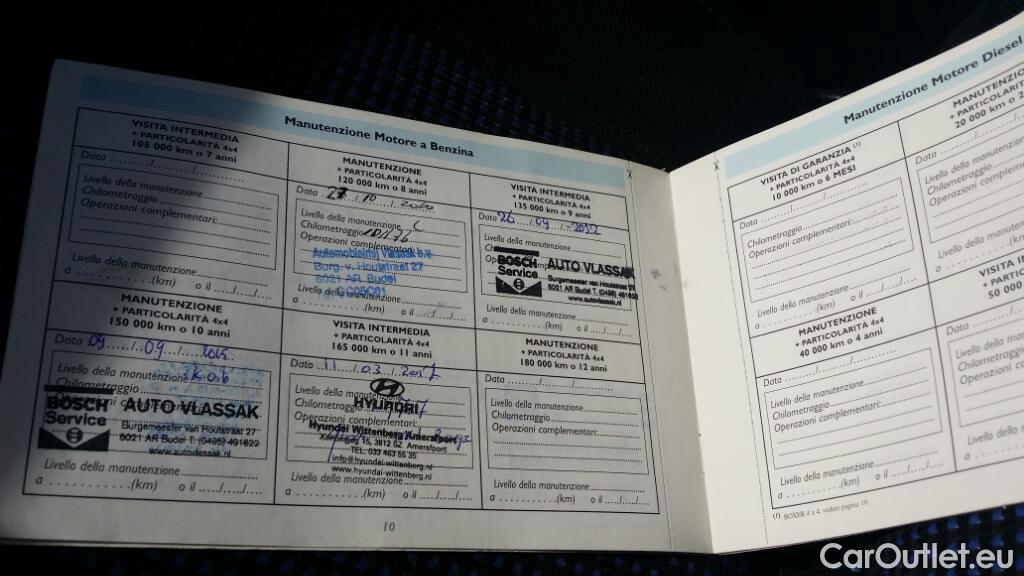 Manutenzione Motore a Benzina
VISITA INTERMEDIA
+ PARTICOLARITÀ 4x4
105 000 km o 7 anni
Data ........../....../......
Livello della manutenzione
Chilometraggio
Operazioni complementari:
Livello della manutenzione
a ..........(km) o il ...../...../.....
MANUTENZIONE
+ PARTICOLARITÀ 4x4
120 000 km o 8 anni
Data 27 / 10 /
Livello della manutenzione C
Chilometraggio
Operazioni complementari:
Automobielbedrijf Vlassak b.v.
Burg. v. Houtstraat 27
6021 AR Budel
Livello della manutenzione
a ..........(km) o il ...../...../.....
VISITA INTERMEDIA
+ PARTICOLARITÀ 4x4
135 000 km o 9 anni
Data 26 / 09 /
Livello della manutenzione
Chilometraggio
BOSCH
Service
AUTO VLASSAK
Burgemeester van Houtstraat 27
6021 AR Budel T. (0495) 491622
www.autovlassak.nl
a ..........(km) o il ...../...../.....
MANUTENZIONE
+ PARTICOLARITÀ 4x4
150 000 km o 10 anni
Data 09 / 09 /
Livello della manutenzione
Chilometraggio
BOSCH
Service
AUTO VLASSAK
Burgemeester van Houtstraat 27
6021 AR Budel T. (0495) 491622
www.autovlassak.nl
Livello della manutenzione
a ..........(km) o il ...../...../.....
VISITA INTERMEDIA
+ PARTICOLARITÀ 4x4
165 000 km o 11 anni
Data 11 / 03 / 2017
Livello della manutenzione
Chilometraggio
Operazioni complementari:
HYUNDAI
Hyundai Wittenberg Amersfoort
15, 3812 SZ Amersfoort
TEL: 033 463 55 35
info@hyundai-wittenberg.nl
www.hyundai-wittenberg.nl
a ..........(km) o il ...../...../.....
MANUTENZIONE
+ PARTICOLARITÀ 4x4
180 000 km o 12 anni
Data ........../....../......
Livello della manutenzione
Chilometraggio
Operazioni complementari:
Livello della manutenzione
a ..........(km) o il ...../...../.....
10
Manutenzione Motore Diesel
VISITA DI GARANZIA (1)
+ PARTICOLARITÀ 4x4
10 000 km o 6 MESI
Data ........../....../......
Chilometraggio
Operazioni complementari:
Livello della manutenzione
a ..........(km) o il ...../...../.....
MANUTENZIO
+ PARTICOLARITÀ
20 000 km o 2
Data
Livello della manutenzione
Chilometraggio
Operazioni complemen
Livello della manutenzione
a ..........(km)
MANUTENZIONE
+ PARTICOLARITÀ 4x4
40 000 km o 4 anni
Data ........../....../......
Livello della manutenzione
Chilometraggio
Operazioni complementari:
Livello della manutenzione
a ..........(km) o il ...../...../.....
VISITA IN
+ PARTICOL
50 000
Data
Livello della manu
Chilometraggio
Operazioni comple
Livello della manu
a
(1) BOXER 4 x 4, vedere pagina 19.
CarOutlet.eu